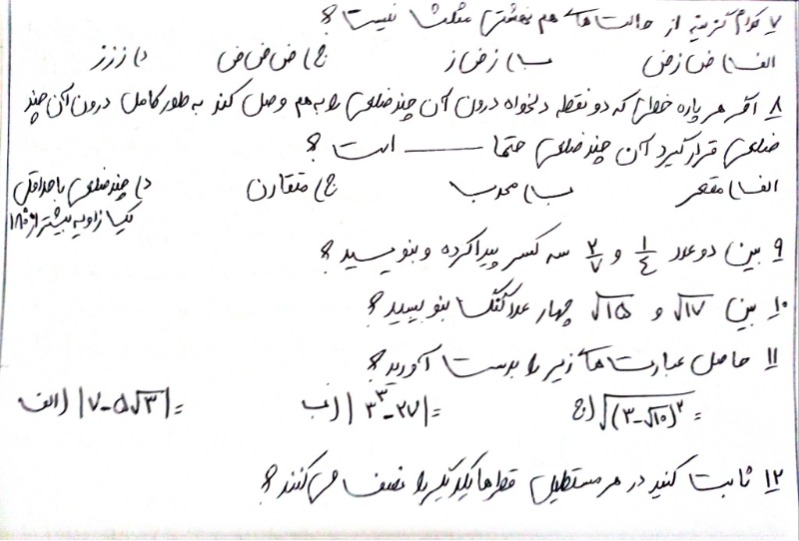 ۷ کدام گزینه از حالت‌های هم نهشتی مثلث نیست؟
الف) ض ز ض ب) ز ض ز ج) ض ض ض د) ز ز ز
۸ اگر هر پاره خطی که دو نقطه دلخواه درون آن چند ضلعی را به هم وصل کند به طور کامل درون آن چند
ضلعی قرار گیرد آن چند ضلعی حتما ــــــ است؟
الف) مقعر ب) محدب ج) متقارن د) چند ضلعی با حداقل
یک زاویه بیشتر از ۱۸۰°
۹ بین دو عدد ۱/۴ و ۲/۷ سه کسر پیدا کرده و بنویسید؟
۱۰ بین √۱۷ و √۱۵ چهار عدد گنگ بنویسید؟
۱۱ حاصل عبارت‌های زیر را بدست آورید؟
الف) |۷-۵√۳| = ب) |۳^۳-۲۷| = ج) √(۳-√۱۰)^۲ =
۱۲ ثابت کنید در هر مستطیل قطرها یکدیگر را نصف می‌کنند؟